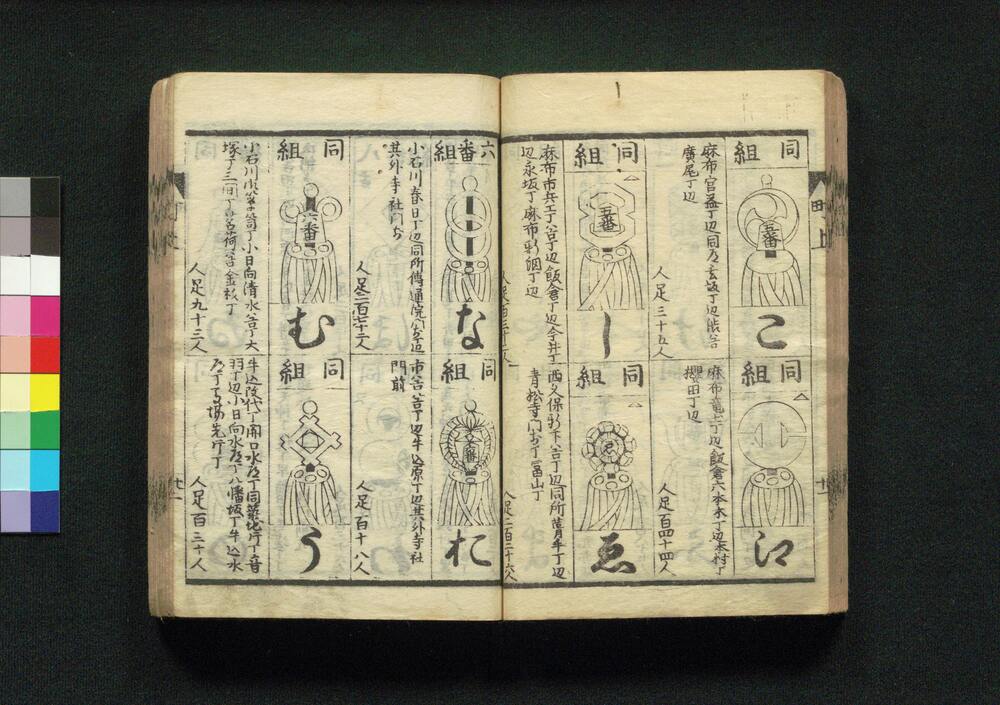 同組
五番
こ
麻布宮益丁辺同所玄坂丁辺渋谷
廣尾丁辺
人足三十五人
同組
江
麻布竜土丁辺飯倉六本木丁辺本村丁
櫻田丁辺
人足百四十四人
同組
五番
し
麻布市兵エ丁谷丁辺飯倉丁辺今井丁
辺永坂丁麻布新網丁辺
同組
ゑ
西久保新下谷丁辺同所
青松寺門前丁冨山丁
人足二百二十六人
六番組
な
小石川春日丁辺同所傳通院前辺
其外寺社門前
人足二百七十二人
同組
六番
お
市谷谷丁辺牛込原丁辺其外寺社
門前
人足百十八人
同組
六番
む
小石川御箪笥丁小日向清水谷丁大
塚丁三四丁目茗荷谷金杉丁
人足九十三人
同組
う
牛込改代丁関口水道丁同築地片丁音
羽丁辺小日向水道丁八幡坂丁牛込水
道丁馬場先片丁
人足百三十人
町上